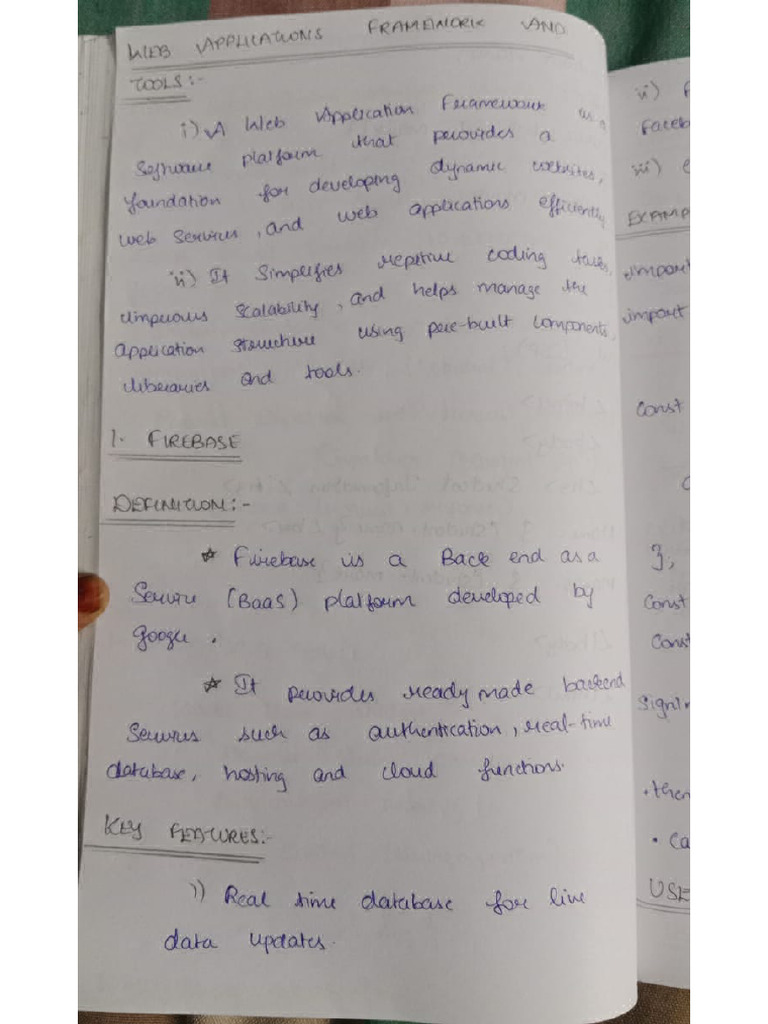 WEB APPLICATIONS FRAMEWORK AND
TOOLS:-
i) A Web Application Framework is a
Software platform that provides a
foundation for developing dynamic websites,
web services, and web applications efficiently
ii) It Simplifies repetive coding tasks,
improves scalability, and helps manage the
application structure using pre-built components,
libraries and tools.
1. FIREBASE
DEFINITION:-
* Firebase is a Back end as a
Service (BaaS) platform developed by
google.
* It provides ready made backend
Services such as authentication, real-time
database, hosting and cloud functions.
KEY FEATURES:-
i) Real time database for live
data updates.
ii) F
Faceb
iii) C
EXAMP
import
import
Const
};
Const
Const
SignIn
.then
.ca
USE